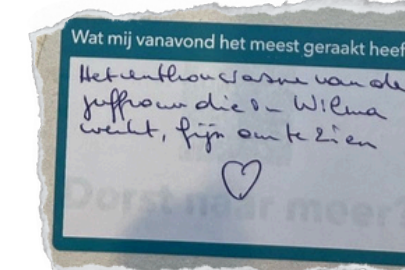 Wat mij vanavond het meest geraakt heef
Het enthousiasme van de
juffrouw die Wilma
werkt, fijn om te zien
Dorst naar meer?